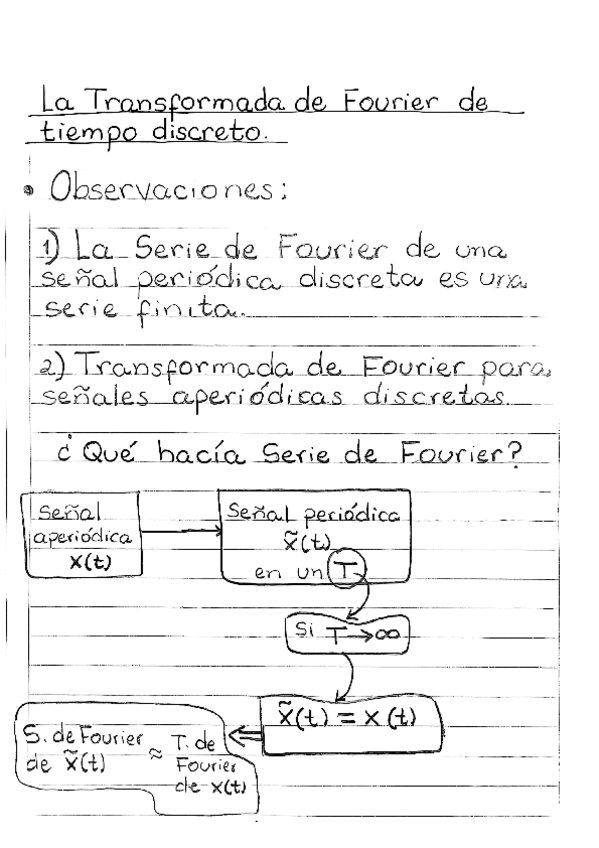 La Transformada de Fourier de
tiempo discreto.
• Observaciones:
1) La Serie de Fourier de una
señal periódica discreta es una
serie finita.
2) Transformada de Fourier para
señales aperiódicas discretas.
¿Qué hacía Serie de Fourier?
Señal
aperiódica
x(t)
Señal periódica
x̃(t)
en un T
Si T→∞
x̃(t) = x(t)
S. de Fourier
de x̃(t)
≈
T. de
Fourier
de x(t)